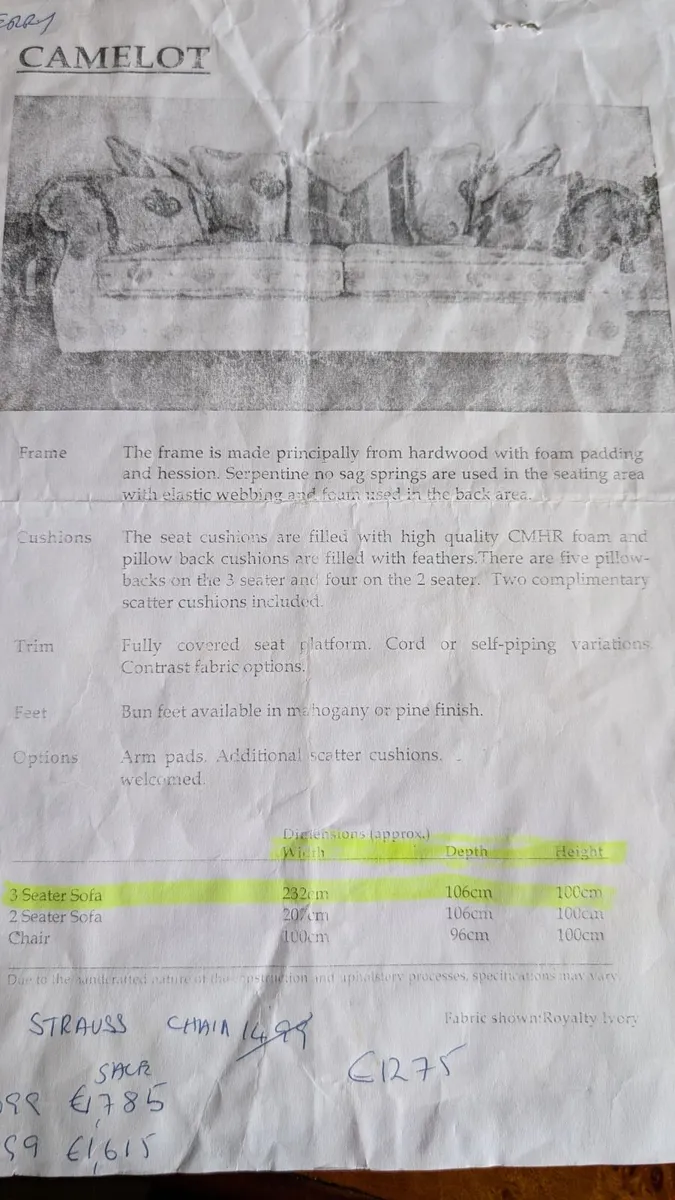 CAMELOT
Frame The frame is made principally from hardwood with foam padding
and hession. Serpentine no sag springs are used in the seating area
with elastic webbing and foam used in the back area.
Cushions The seat cushions are filled with high quality CMHR foam and
pillow back cushions are filled with feathers.There are five pillow-
backs on the 3 seater and four on the 2 seater. Two complimentary
scatter cushions included.
Trim Fully covered seat platform. Cord or self-piping variations
Contrast fabric options.
Feet Bun feet available in mahogany or pine finish.
Options Arm pads. Additional scatter cushions.
welcomed.
Dimensions (approx.)
Width Depth Height
3 Seater Sofa 232cm 106cm 100cm
2 Seater Sofa 207cm 106cm 100cm
Chair 100cm 96cm 100cm
Due to the handcrafted nature of the construction and upholstery processes, specifications may vary.
Fabric shown:Royalty Ivory
STRAUSS CHAIR 1499
€1275
€1,785
€1,615